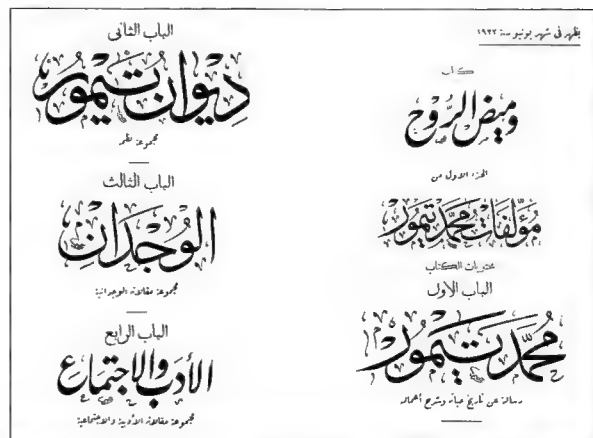 يظهر فى شهر يونيو سنة ١٩٢٢
كتاب
وميض الرُّوح
الجزء الاول من
مؤلفات محمد تيمور
محتويات الكتاب
الباب الاول
محمد تيمور
رسالة عن تاريخ حياته وشرح أعماله
الباب الثانى
ديوان تيمور
مجموعة نظم
الباب الثالث
الوجدان
مجموعة مقالاته الوجدانية
الباب الرابع
الأدب والاجتماع
مجموعة مقالاته الأدبية والاجتماعية